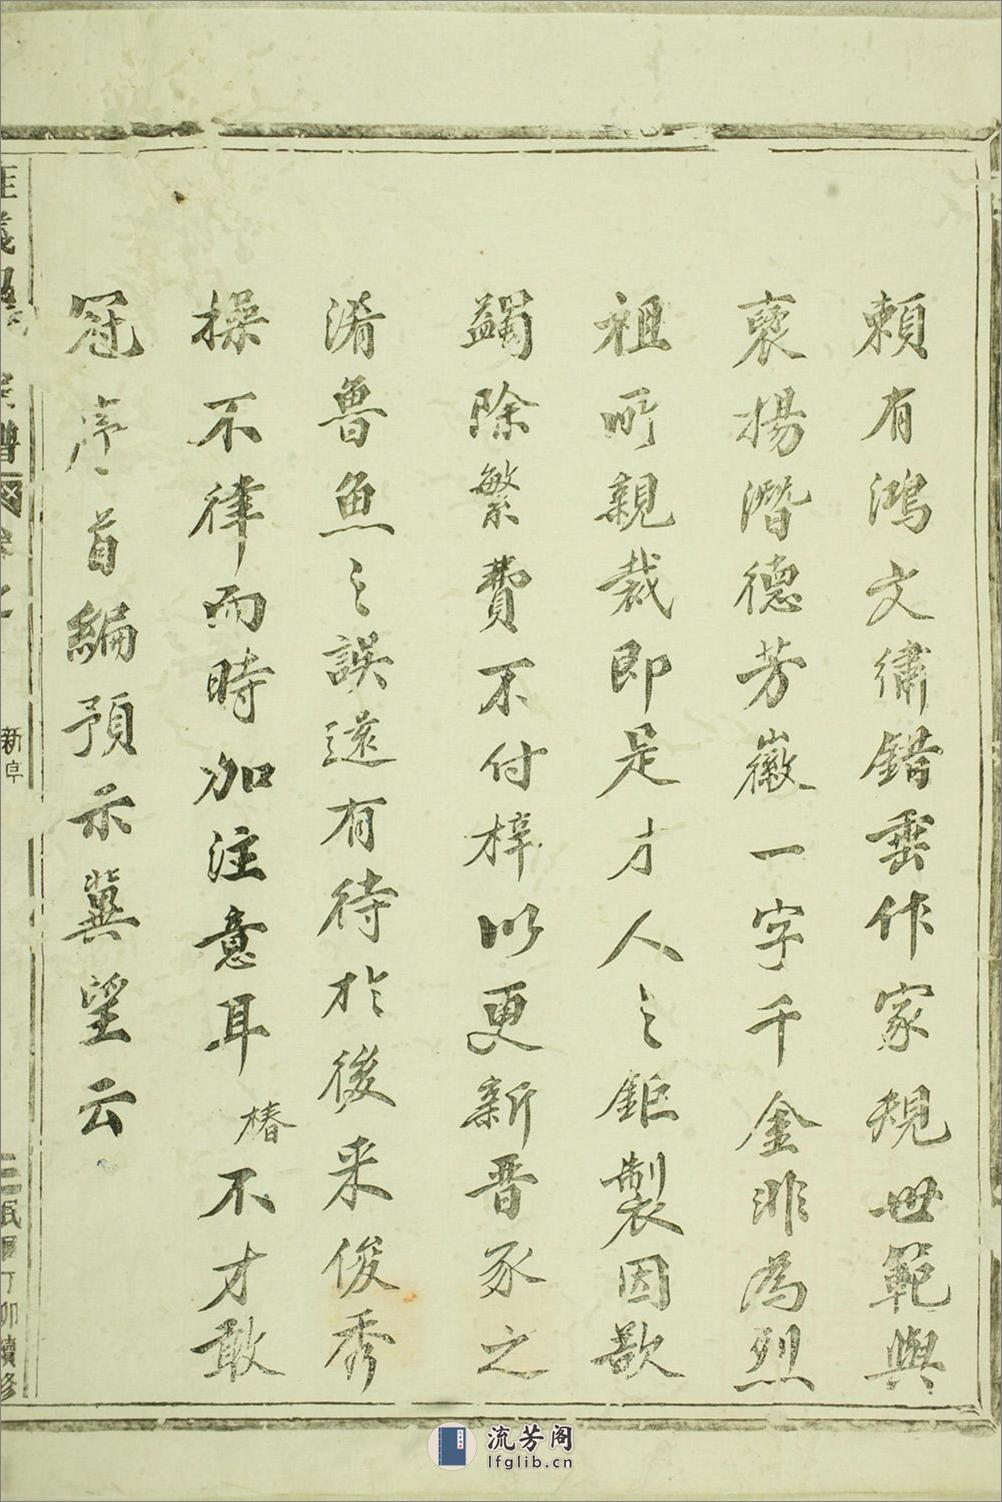 賴有鴻文繡錯雲作家規世範與
襃揚潛德芳徽一字千金非為烈
祖所親裁即是才人之鉅製因歆
蠲除繁費不付梓以更新晉豕之
淆魯魚之誤遠有待於後来俊秀
操不律而時加注意耳椿不才敢
冠序首編預示冀望云
新阜
民國丁卯續修
流芳阁
lfglib.cn